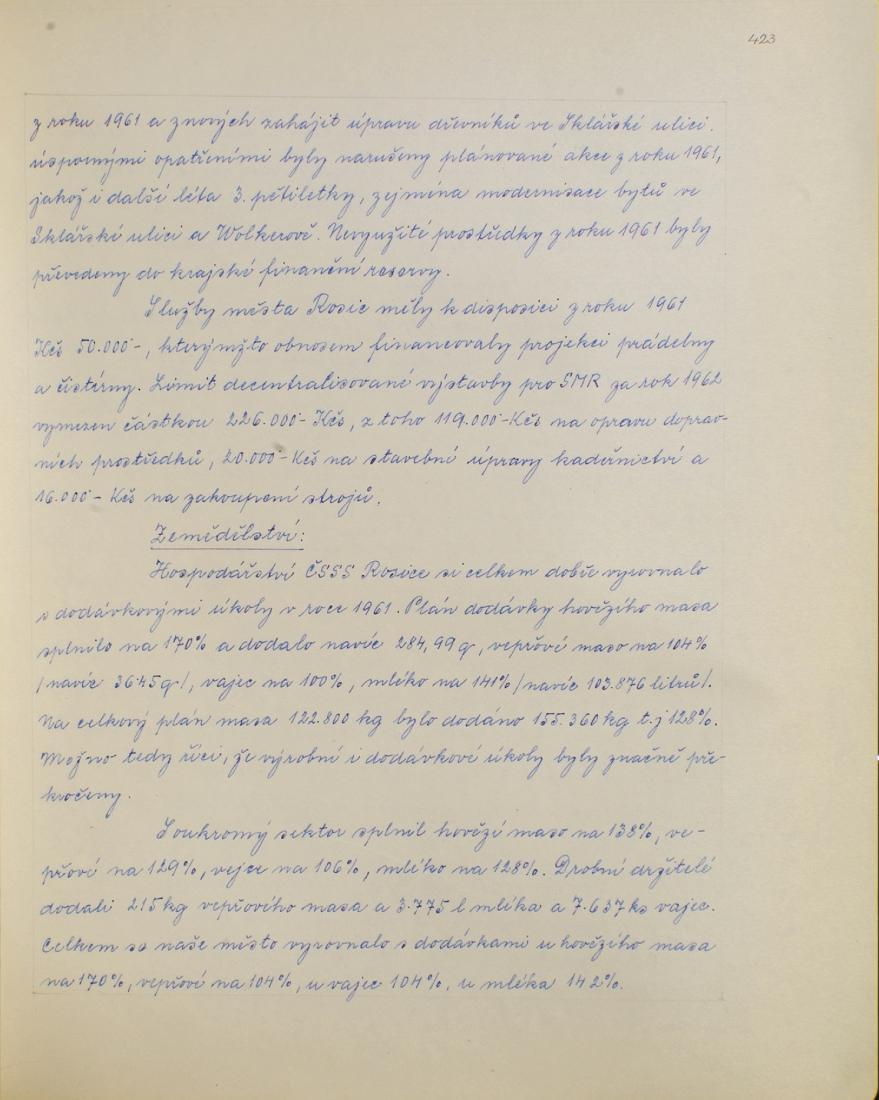 423
z roku 1961 a znových zahájit úpravu dřevníků ve Sklářské ulici.
úspornými opatřeními byly narušeny plánované akce z roku 1961,
jakož i další léta 3. pětiletky, zejména modernisace bytů ve
Sklářské ulici a Wolkerově. Nevyužité prostředky z roku 1961 byly
převedeny do krajské finanční reservy.
Služby města Rosic měly k disposici z roku 1961
Kčs 50.000-, kterýmžto obnosem financovaly projekci prádelny
a čistírny. Limit decentralisované výstavby pro SMR za rok 1962
vymezen částkou 226.000- Kčs, z toho 119.000-Kčs na opravu doprav-
ních prostředků, 20.000-Kčs na stavební úpravy kadeřnictví a
16.000- Kčs na zakoupení strojů.
Zemědělství:
Hospodářství ČSSS Rosice si celkem dobře vyrovnalo
s dodávkovými úkoly v roce 1961. Plán dodávky hovězího masa
splnilo na 170% a dodalo navíc 284,99 q, vepřové maso na 104%
/navíc 36.45 q/, vajec na 100%, mléko na 141% /navíc 103.876 litrů/.
Na celkový plán masa 122.800 kg bylo dodáno 155.360 kg t.j 128%.
Možno tedy říci, že výrobní i dodávkové úkoly byly značně pře-
kročeny.
Soukromý sektor splnil hovězí maso na 138%, ve-
přové na 129%, vejce na 106%, mléko na 128%. Drobní držitelé
dodali 215 kg vepřového masa a 3.775 l mléka a 7.637 ks vajec.
Celkem se naše město vyrovnalo s dodávkami u hovězího masa
na 170%, vepřové na 104%, u vajec 104%, u mléka 142%.